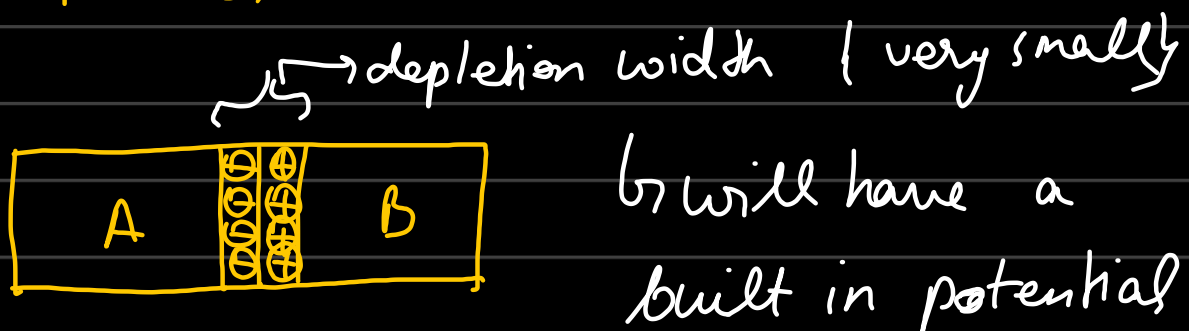 → depletion width (very small)
↳ will have a
A ⊖ ⊕ B
⊖ ⊕
⊖ ⊕
⊖ ⊕
built in potential